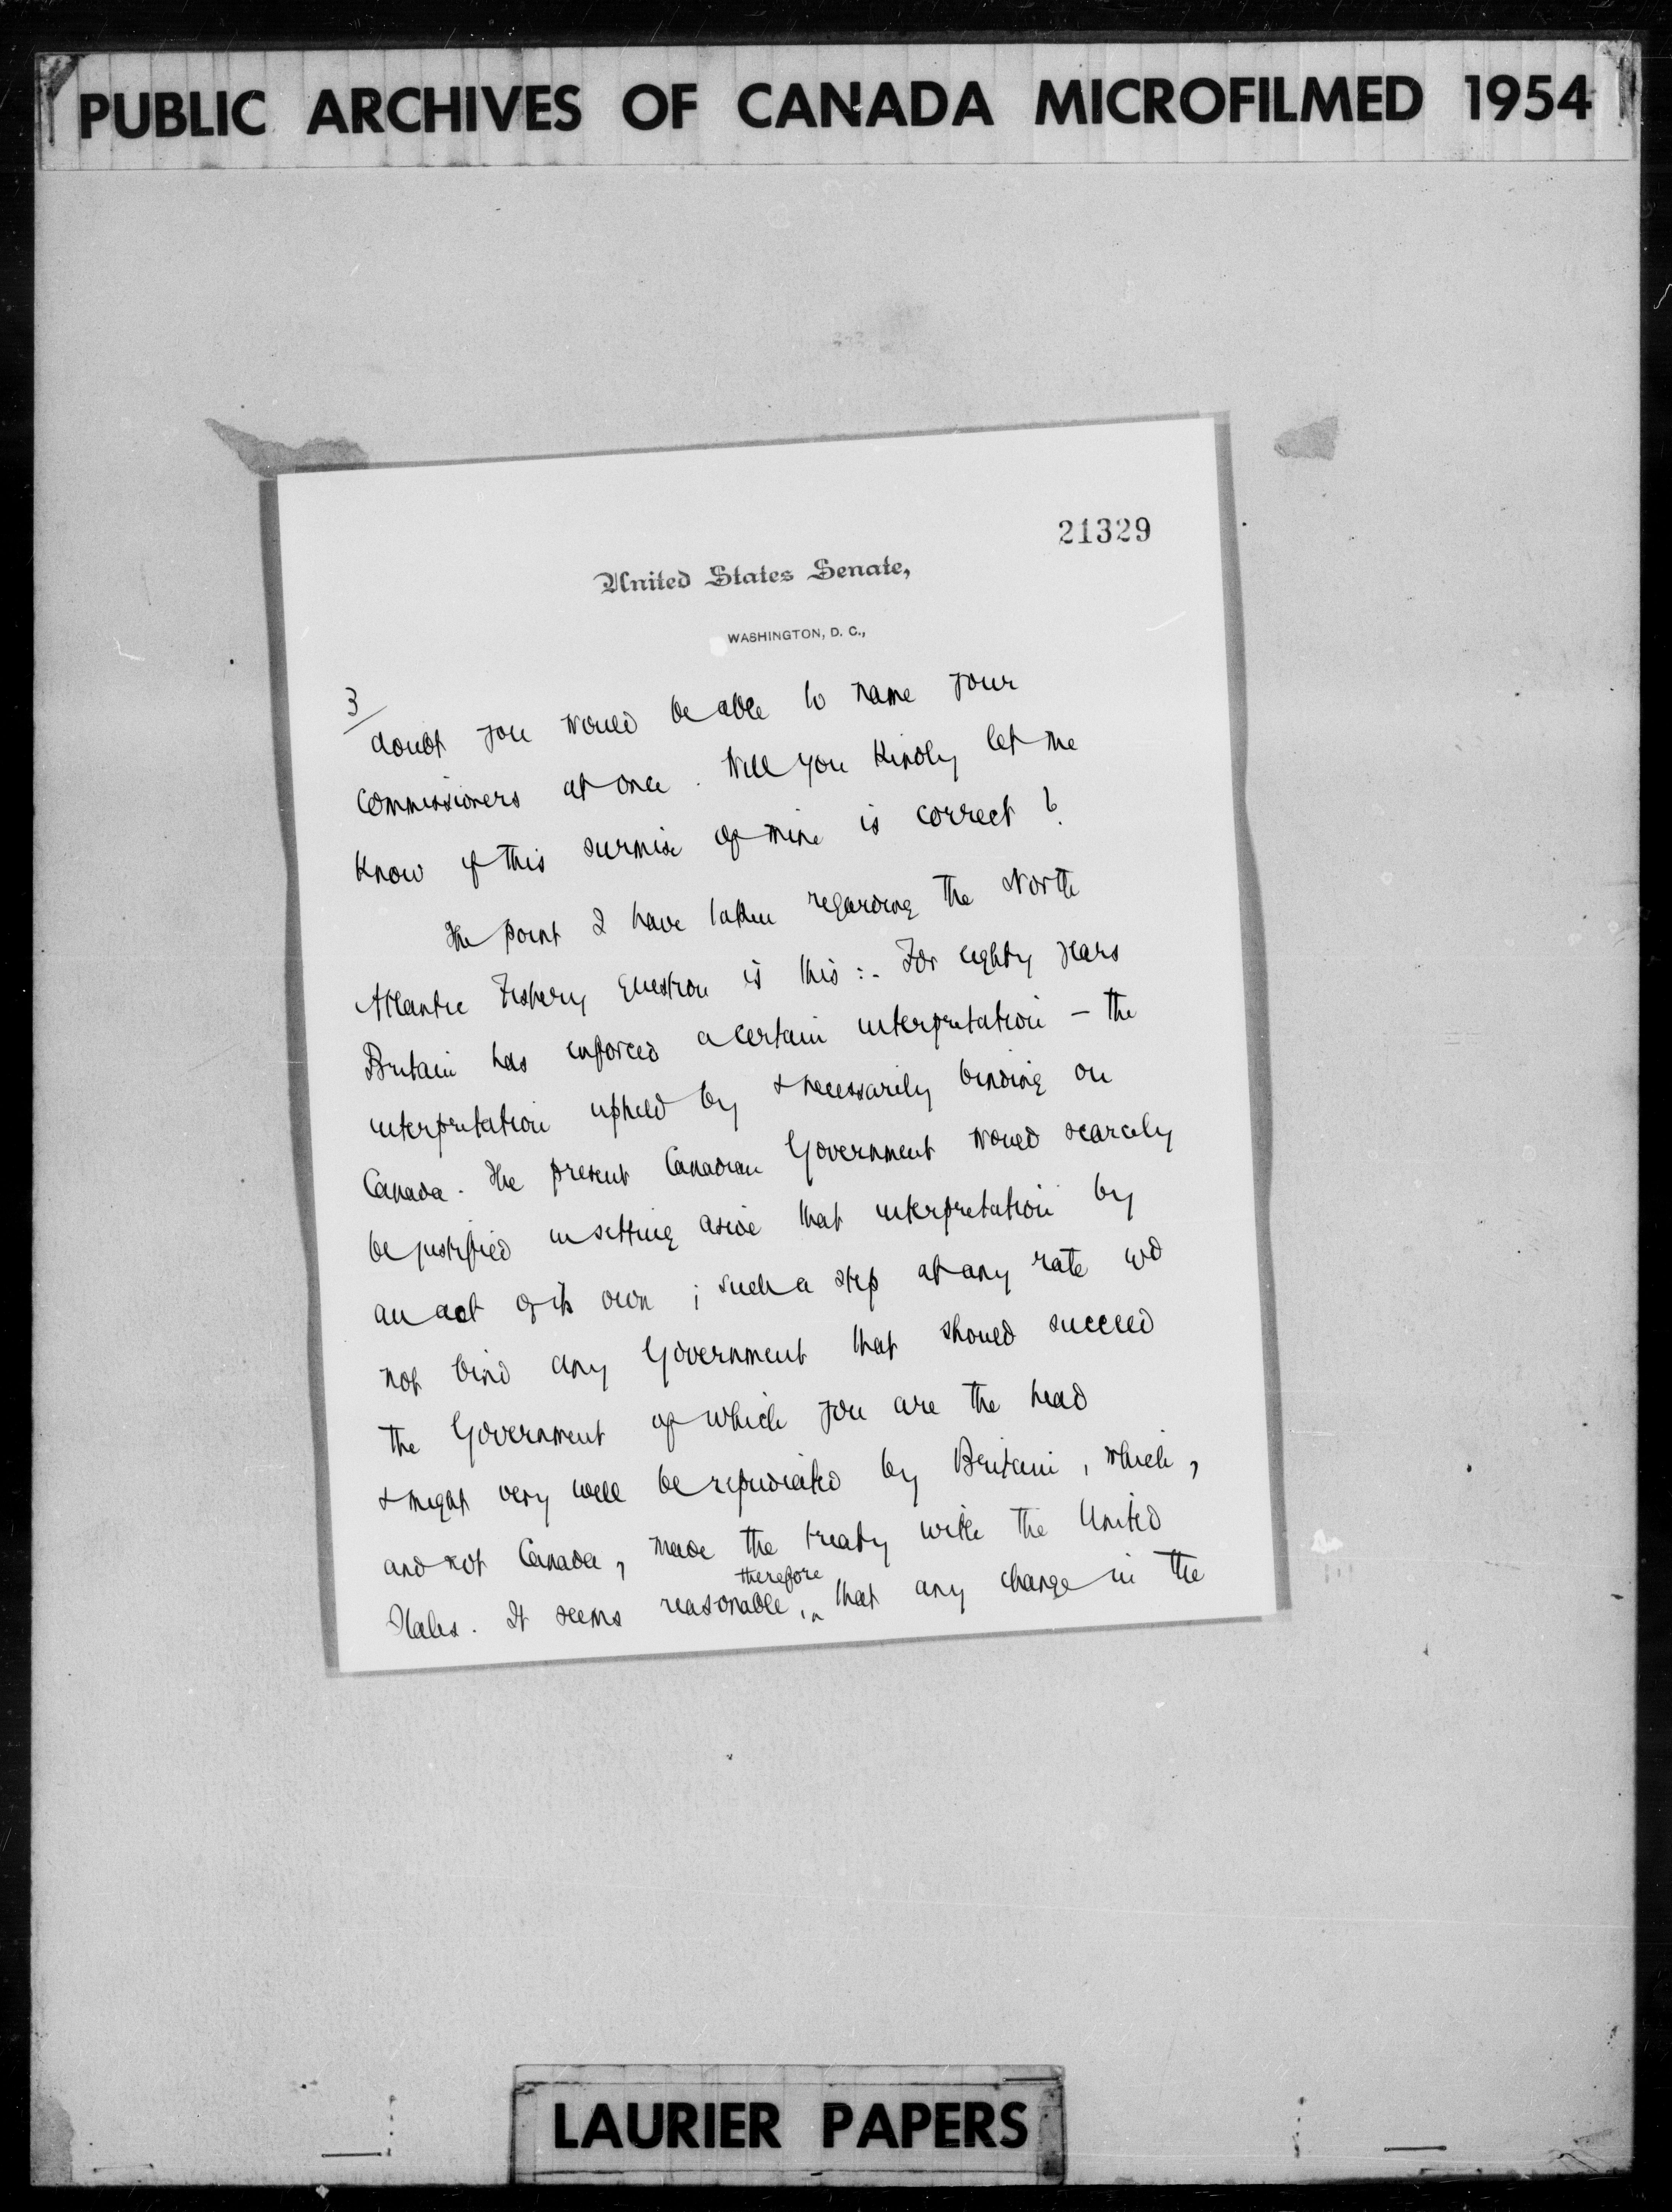 PUBLIC ARCHIVES OF CANADA MICROFILMED 1954
21329
United States Senate,
WASHINGTON, D. C.,
3/
doubt you would be able to name your
Commissioners at once. Will you kindly let me
know if this surmise of mine is correct?
The point I have taken regarding the North
Atlantic Fishery Question is this:- For eighty years
Britain has enforced a certain interpretation - the
interpretation upheld by & necessarily binding on
Canada. The present Canadian Government would scarcely
be justified in setting aside that interpretation by
an act of its own; such a step at any rate wd
not bind any Government that should succeed
the Government of which you are the head
& might very well be repudiated by Britain, which,
and not Canada, made the treaty with the United
therefore
States. It seems reasonable, ^ that any change in the
LAURIER PAPERS